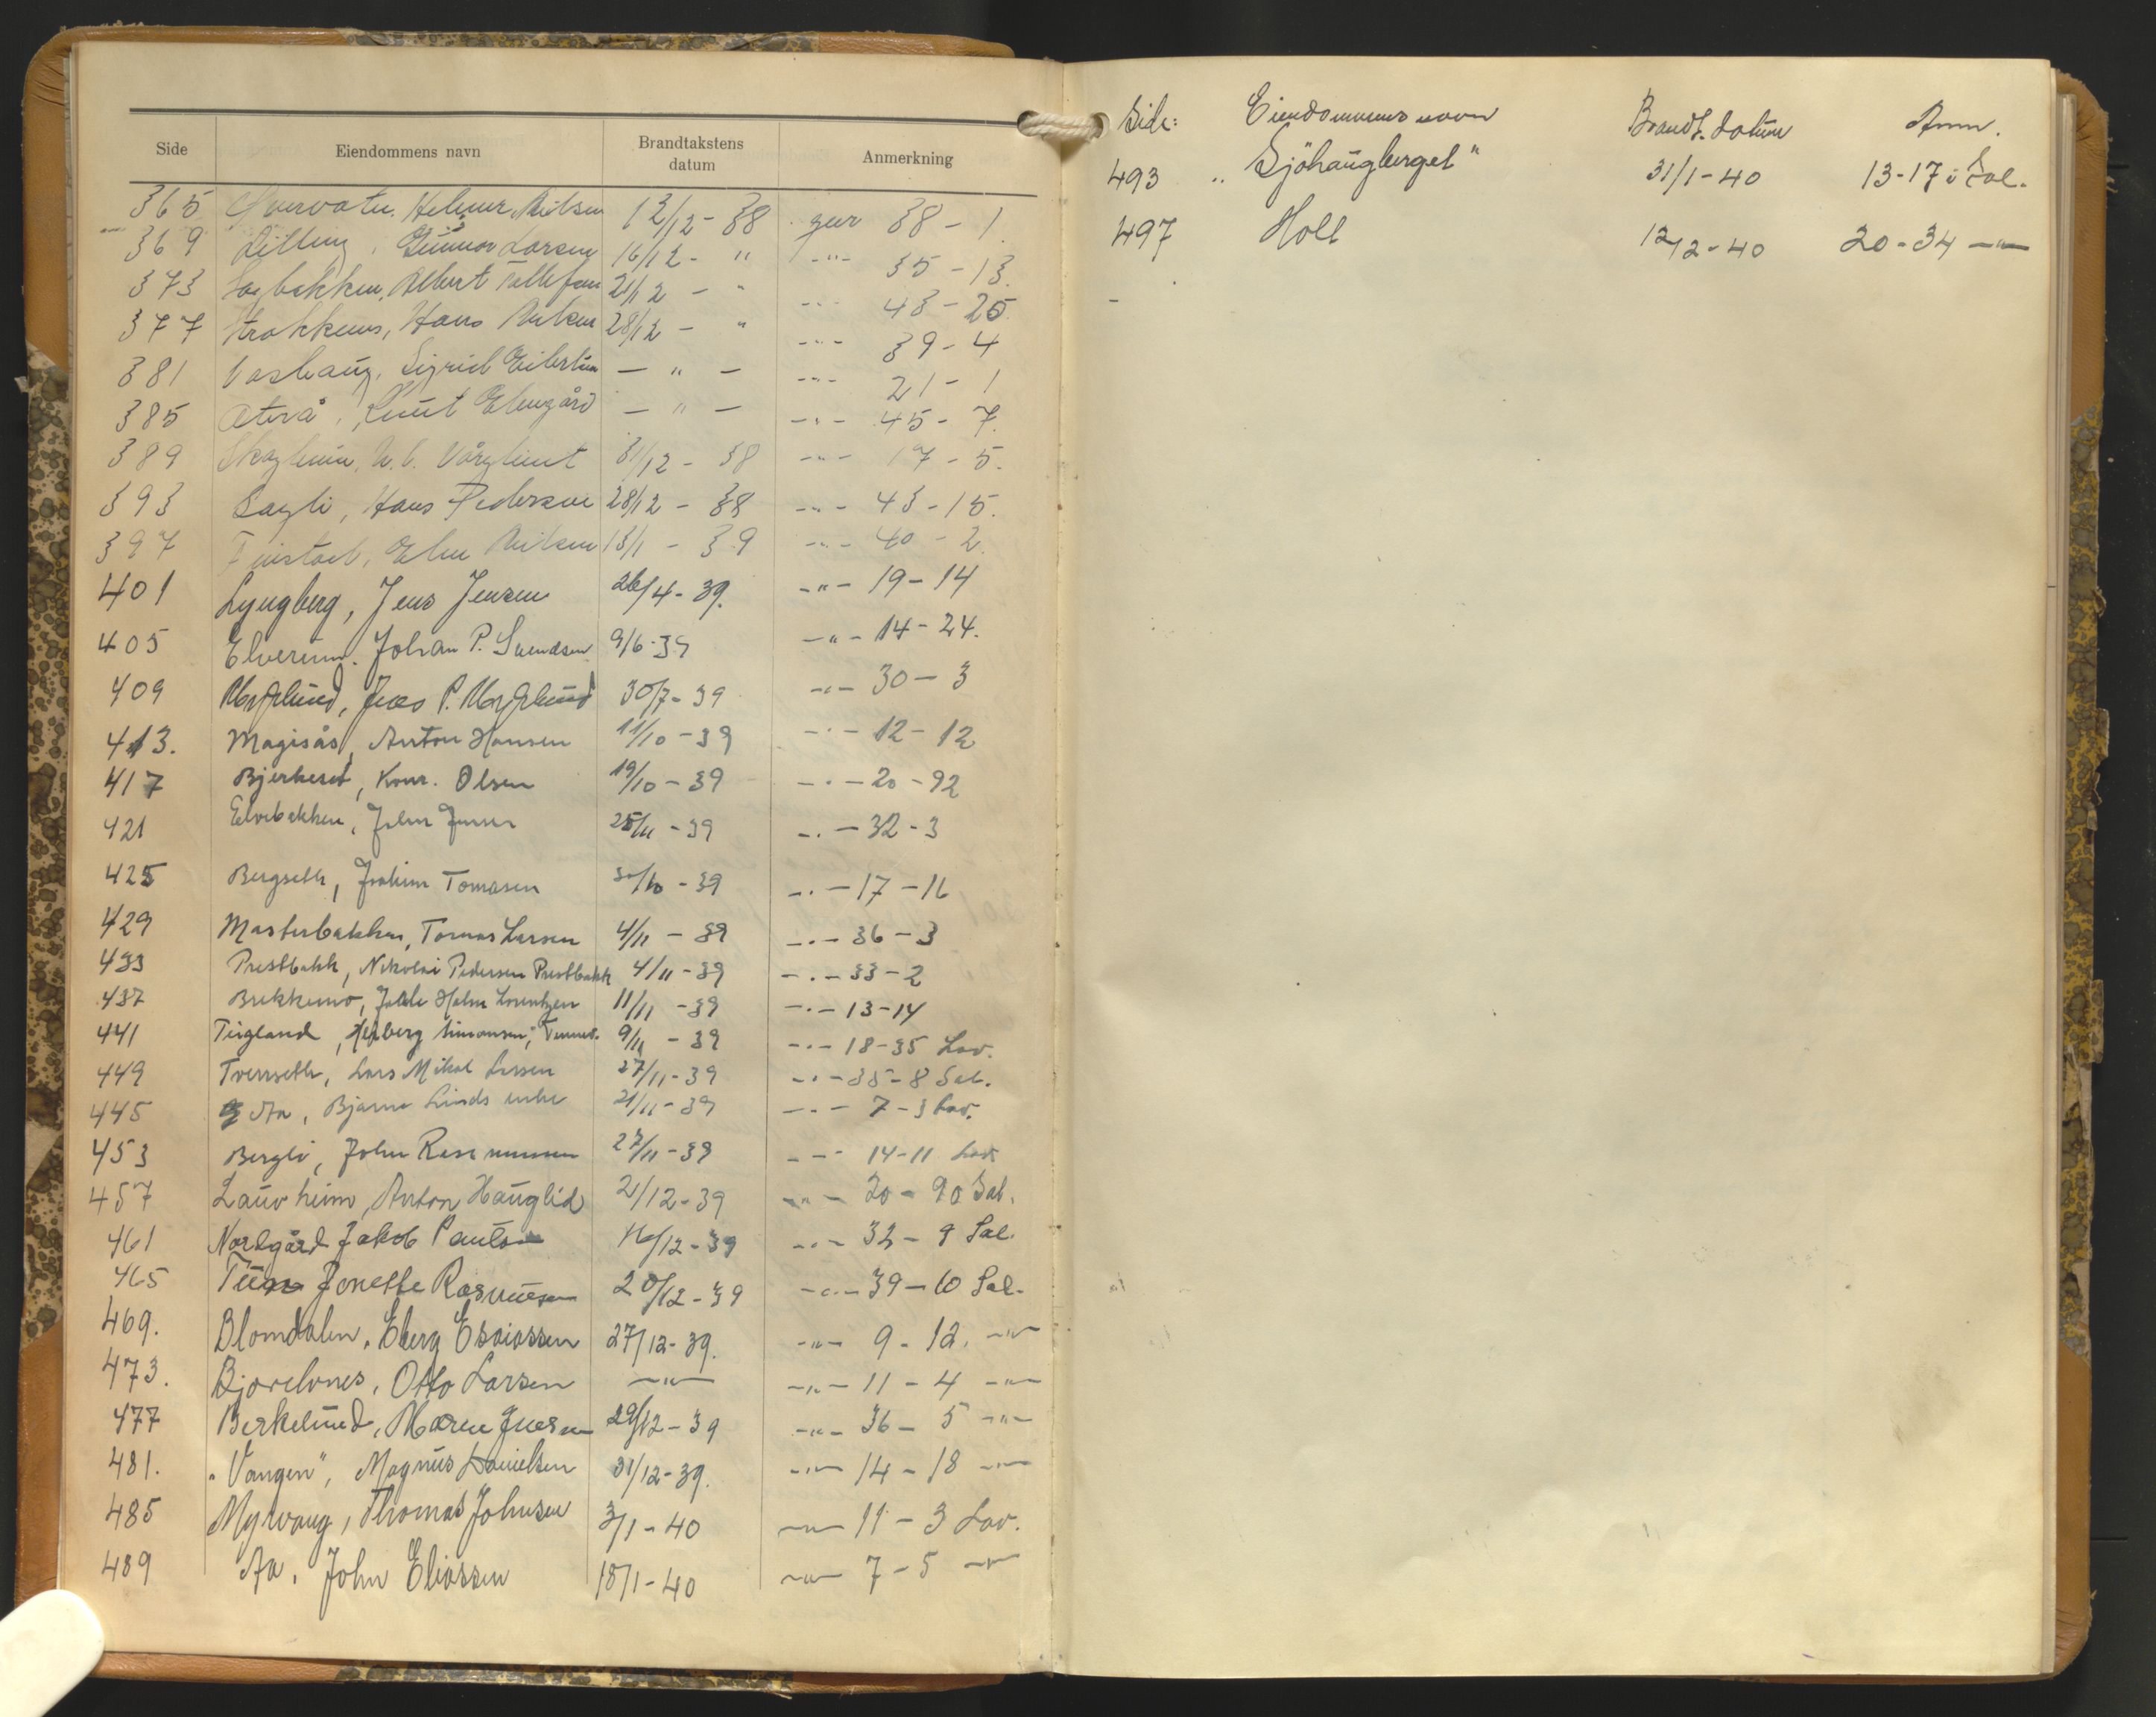 Side Eiendommens navn Brandtakstens datum Anmerkning
365 Helmer Nilsen 13/12 - 38 gnr 38 - 1.
369 Gunnar Larsen 16/12 - " -"- 35 - 13.
373 Albert Tollefsen 21/12 - " -"- 43 - 25
377 Hans Nilsen 28/12 - " -"- 39 - 4
381 Sigrid - " - -"- 21 - 1
385 Knut Elvegård - " - -"- 45 - 7.
389 31/12 - 38 -"- 17 - 5.
393 Lagli, Hans Pedersen 28/12 - 38 -"- 43 - 15.
397 Nilsen 13/1 - 39 -"- 40 - 2.
401 Lyngberg, Jens Jensen 26/4 - 39. -"- 19 - 14
405 Elverum. Johan P. Svendsen 9/6 - 39 -"- 14 - 24.
409 30/7 - 39 -"- 30 - 3
413. Magisås, Anton Hansen 11/10 - 39 -"- 12 - 12
417 Bjerkeset, Konr. Olsen 19/10 - 39 -"- 20 - 92
421 Elvebakken, John 25/11 - 39 -"- 32 - 3
425 Bergseth, Joakim Tomasen 30/10 - 39 -"- 17 - 16
429 Masterbakken, Tomas Larsen 4/11 - 39 -"- 36 - 3
433 Prestbakk, Nikolai Pedersen Prestbakk 4/11 - 39 -"- 33 - 2
437 Brekkemo, Holm Lorentzen 11/11 - 39 -"- 13 - 14
441 Teigland, Simonsen, 9/11 - 39 -"- 18 - 35 Lav.
449 Tverrseth, Lars Mikal Larsen 27/11 - 39 -"- 35 - 8 Sal.
445 Aa, Bjarne Linds enke 21/11 - 39 -"- 7 - 3 Lav.
453 Bergli, John Rasmussen 27/11 - 39 -"- 14 - 11 Lav.
457 Lauvheim, Anton Hauglid 2/12 - 39 -"- 20 - 90 Sal.
461 Nordgård Jakob Paulsen 16/12 - 39 -"- 32 - 9 Sal.
465 Tun Jonette Rasmussen 20/12 - 39 -"- 39 - 10 Sal.
469. Blomdalen, Eberg Esaiassen 27/12 - 39. -"- 9 - 12. -"-
473. Bjorelvnes, Otto Larsen -"- -"- 11 - 4 -"-
477 Berkelund, Maren 29/12 - 39 -"- 36 - 5 -"-
481. "Vangen", Magnus Danielsen 31/12 - 39. -"- 14 - 18 -"-
485 Myrvang, Thomas Johnsen 3/1 - 40 -"- 11 - 3 Lav.
489 Aa, John Eliassen 18/1 - 40 -"- 7 - 5 -"-
Side: Eiendommens navn Brandt. datum Anm.
493 "Sjöhaugberget" 31/1 - 40 13 - 17 i Sal.
497 Holt 12/2 - 40 20 - 34 -"-